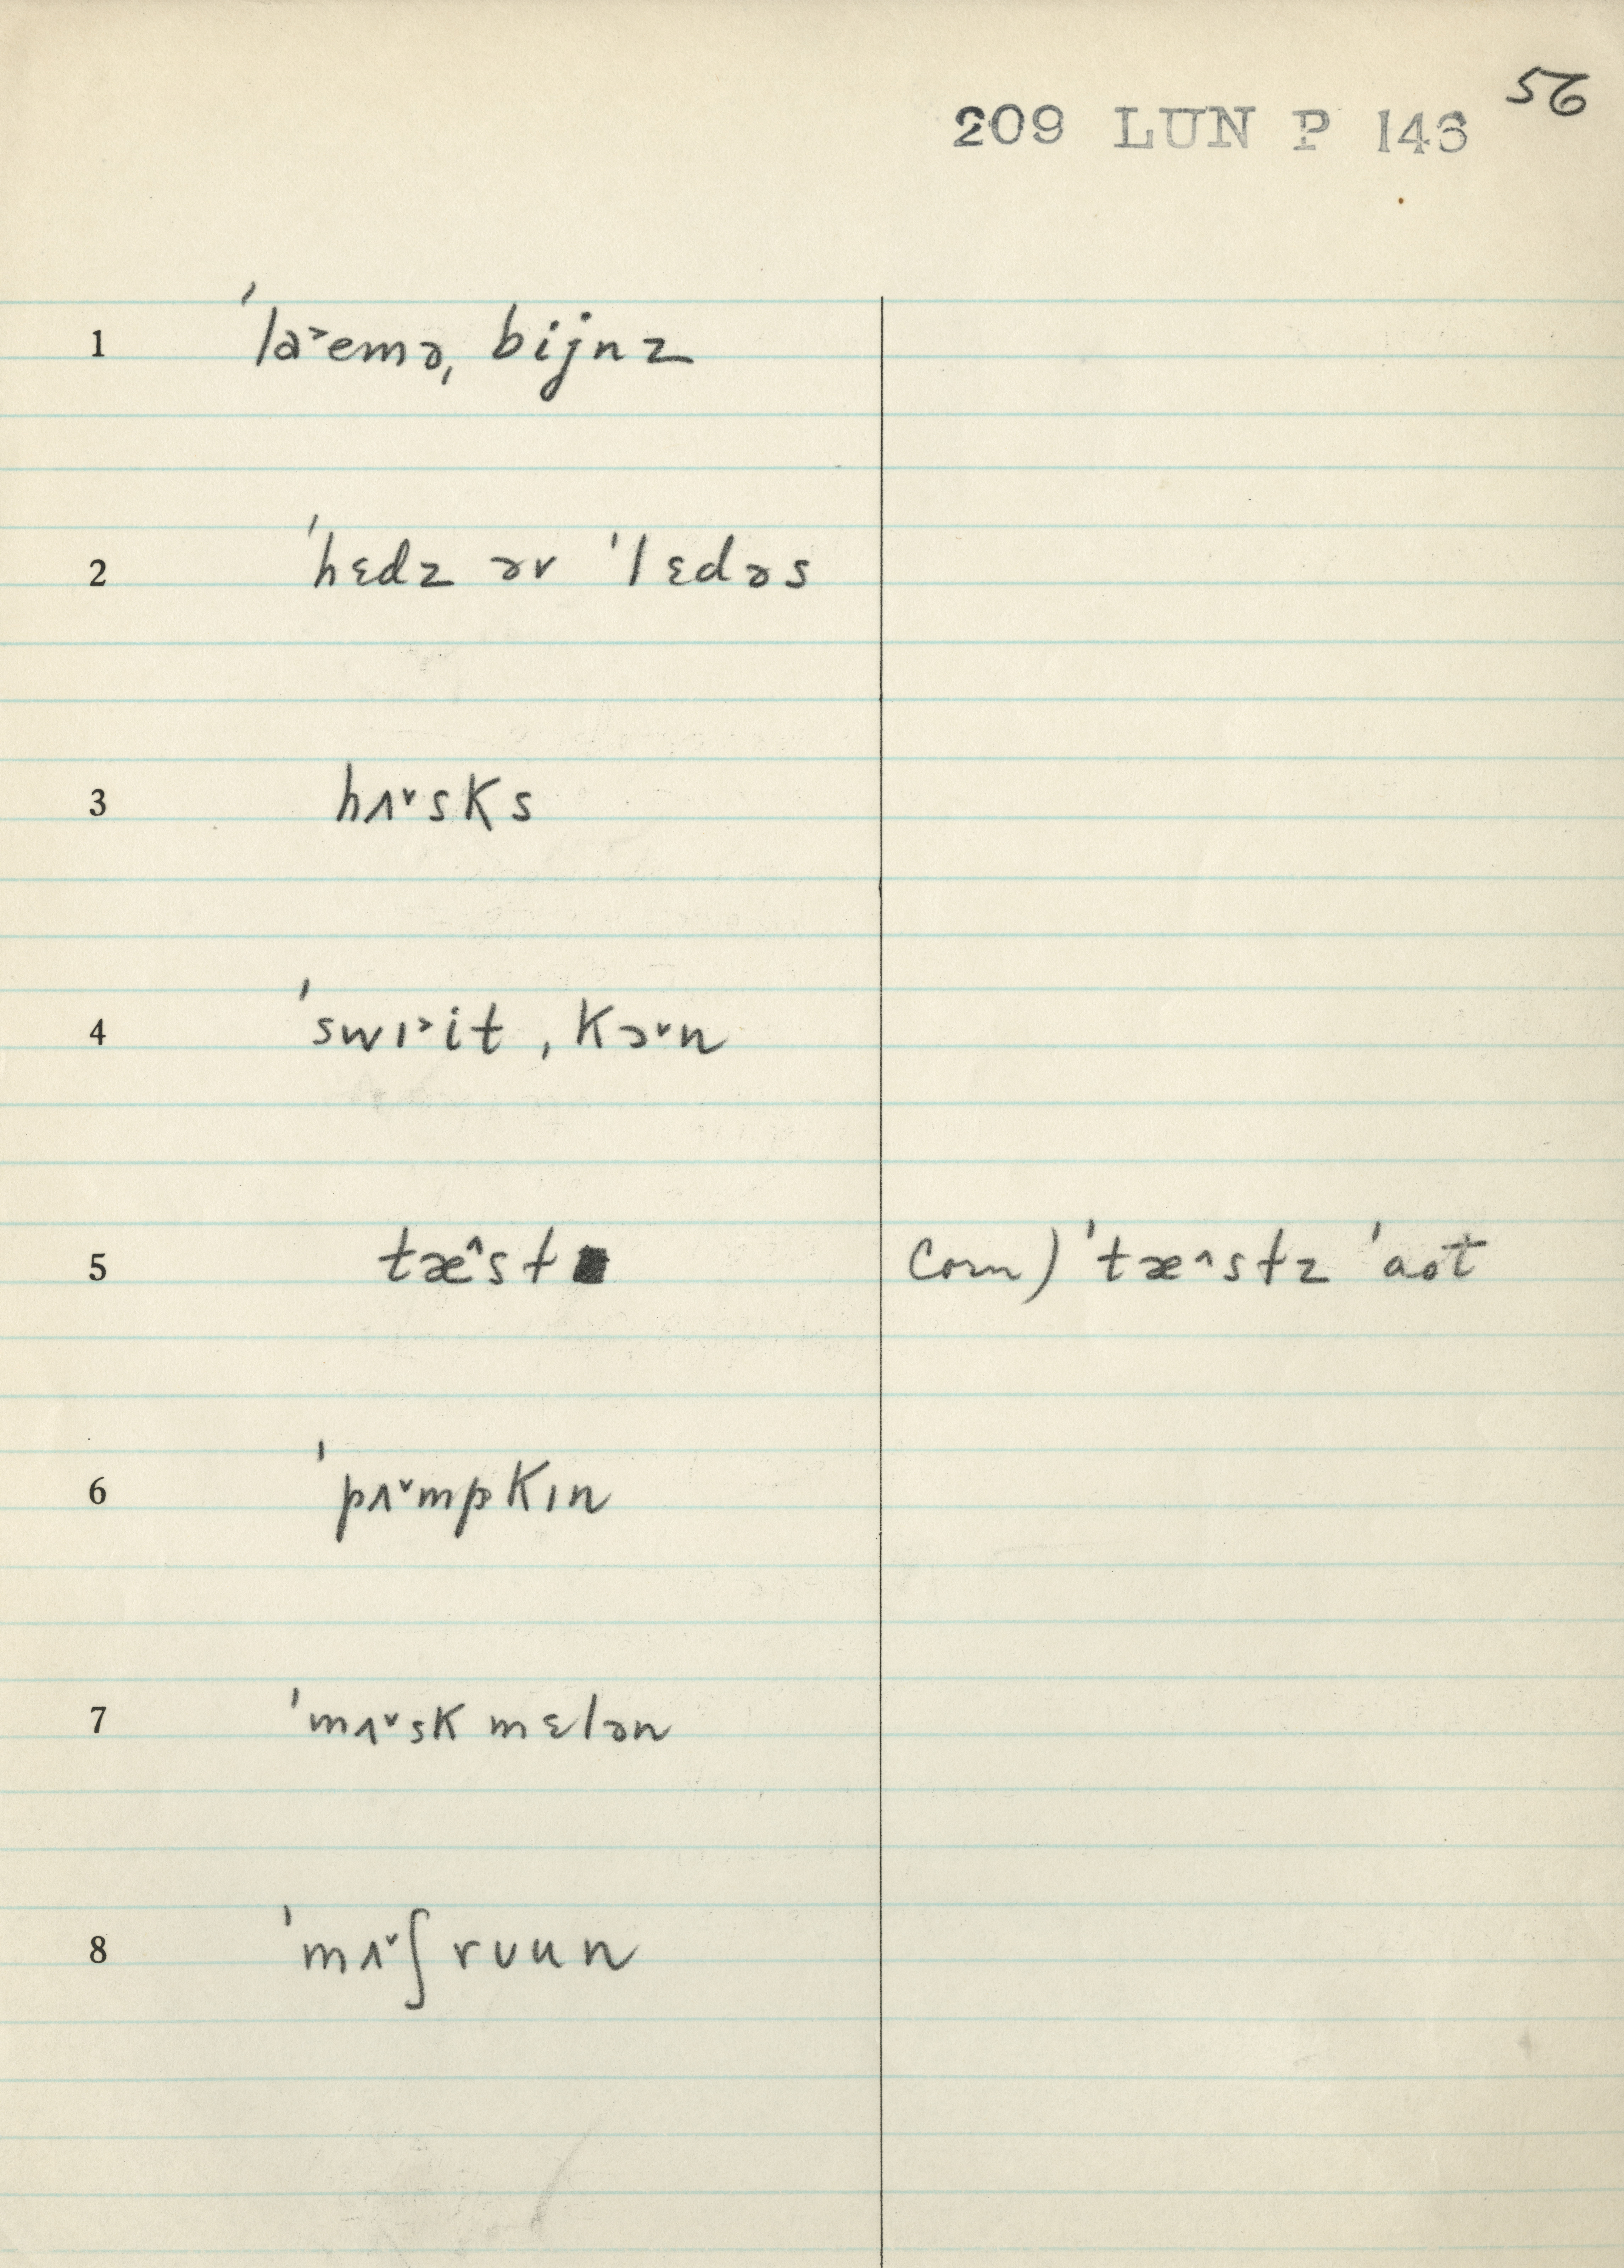 56
209 LUN P 146
1 ˈla˃emə ˌbijnz
2 ˈhɛdz əv ˈlɛdəs
3 hʌ˅sks
4 ˈswɪ˃it ˌkɔ˅n
5 tæ^st com) ˈtæ^stz ˈaot
6 ˈpʌ˅mpkɪn
7 ˈmʌ˅sk mɛlən
8 ˈmʌ˅ʃrʊun